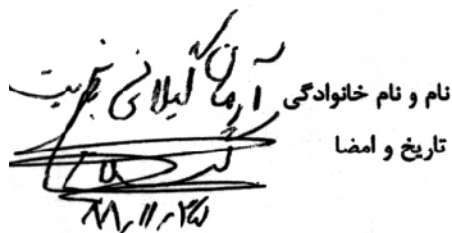 نام و نام خانوادگی آرمان گیلانی
تاریخ و امضا
۸۸،۱۱،۲۵